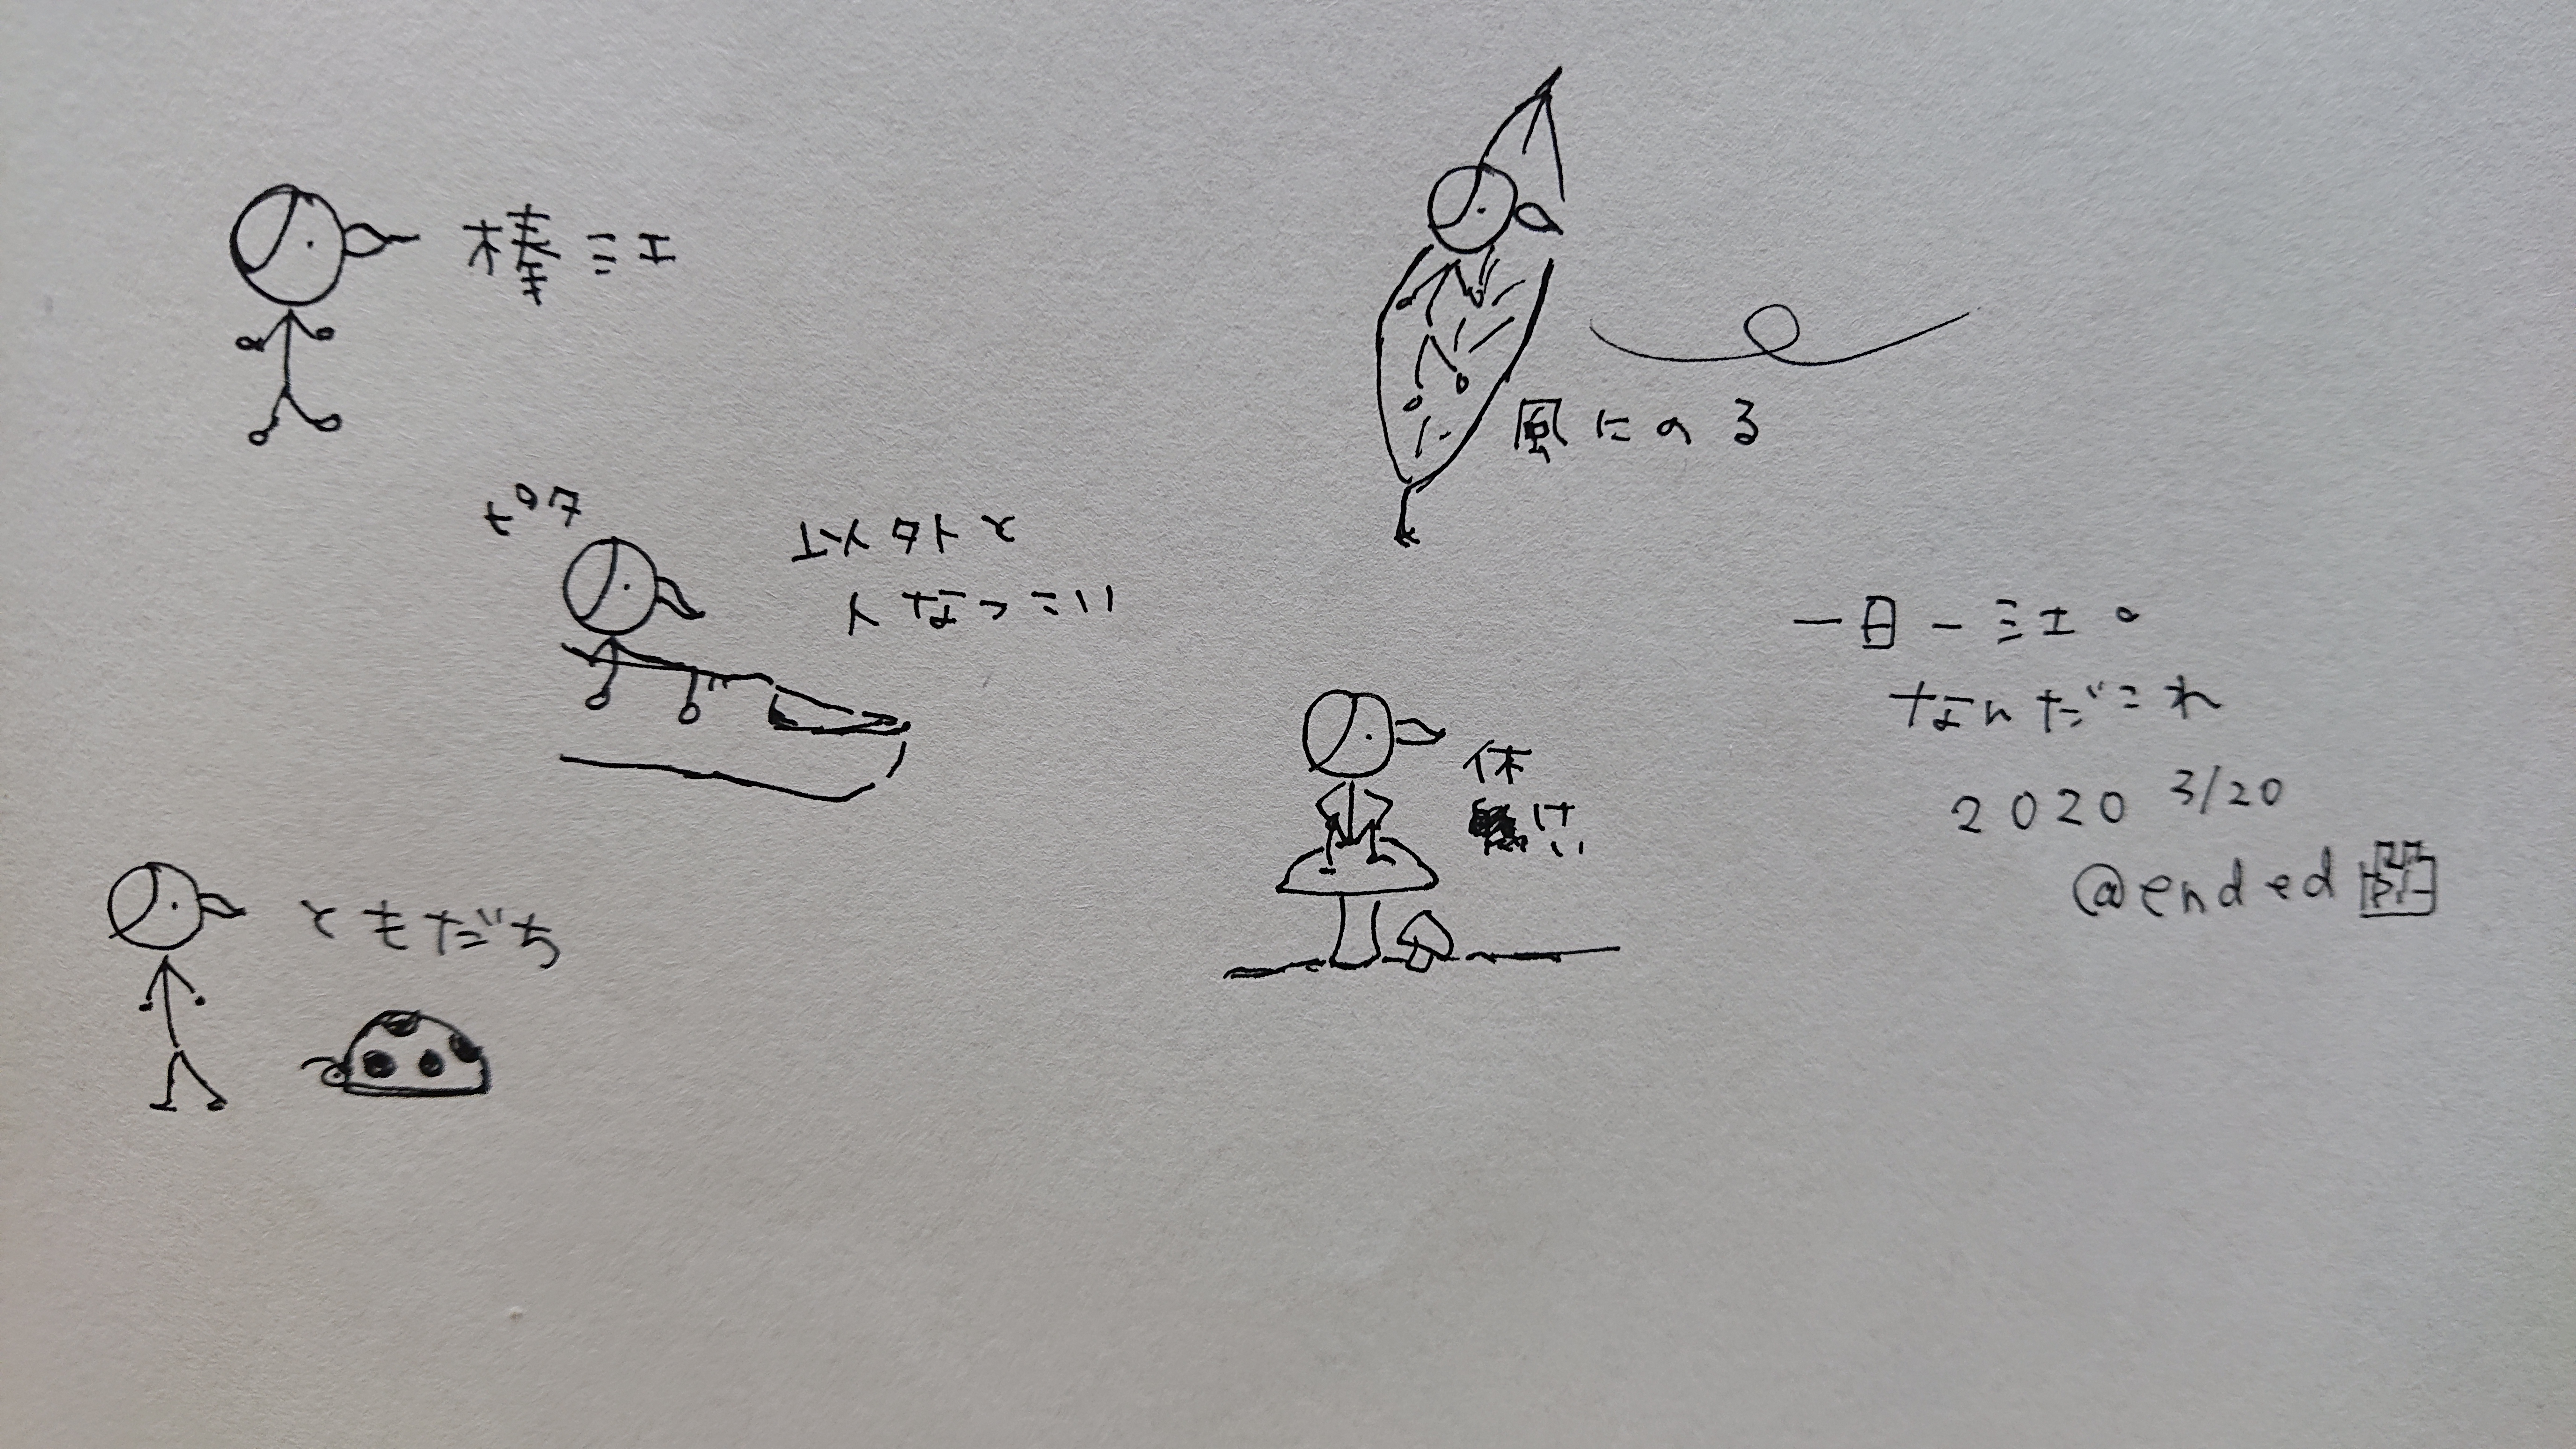 棒ミエ
ピタ
以外と
人なつこい
ともだち
風にのる
休
けい
一日一ミエ。
なんだこれ
2020 3/20
@ended